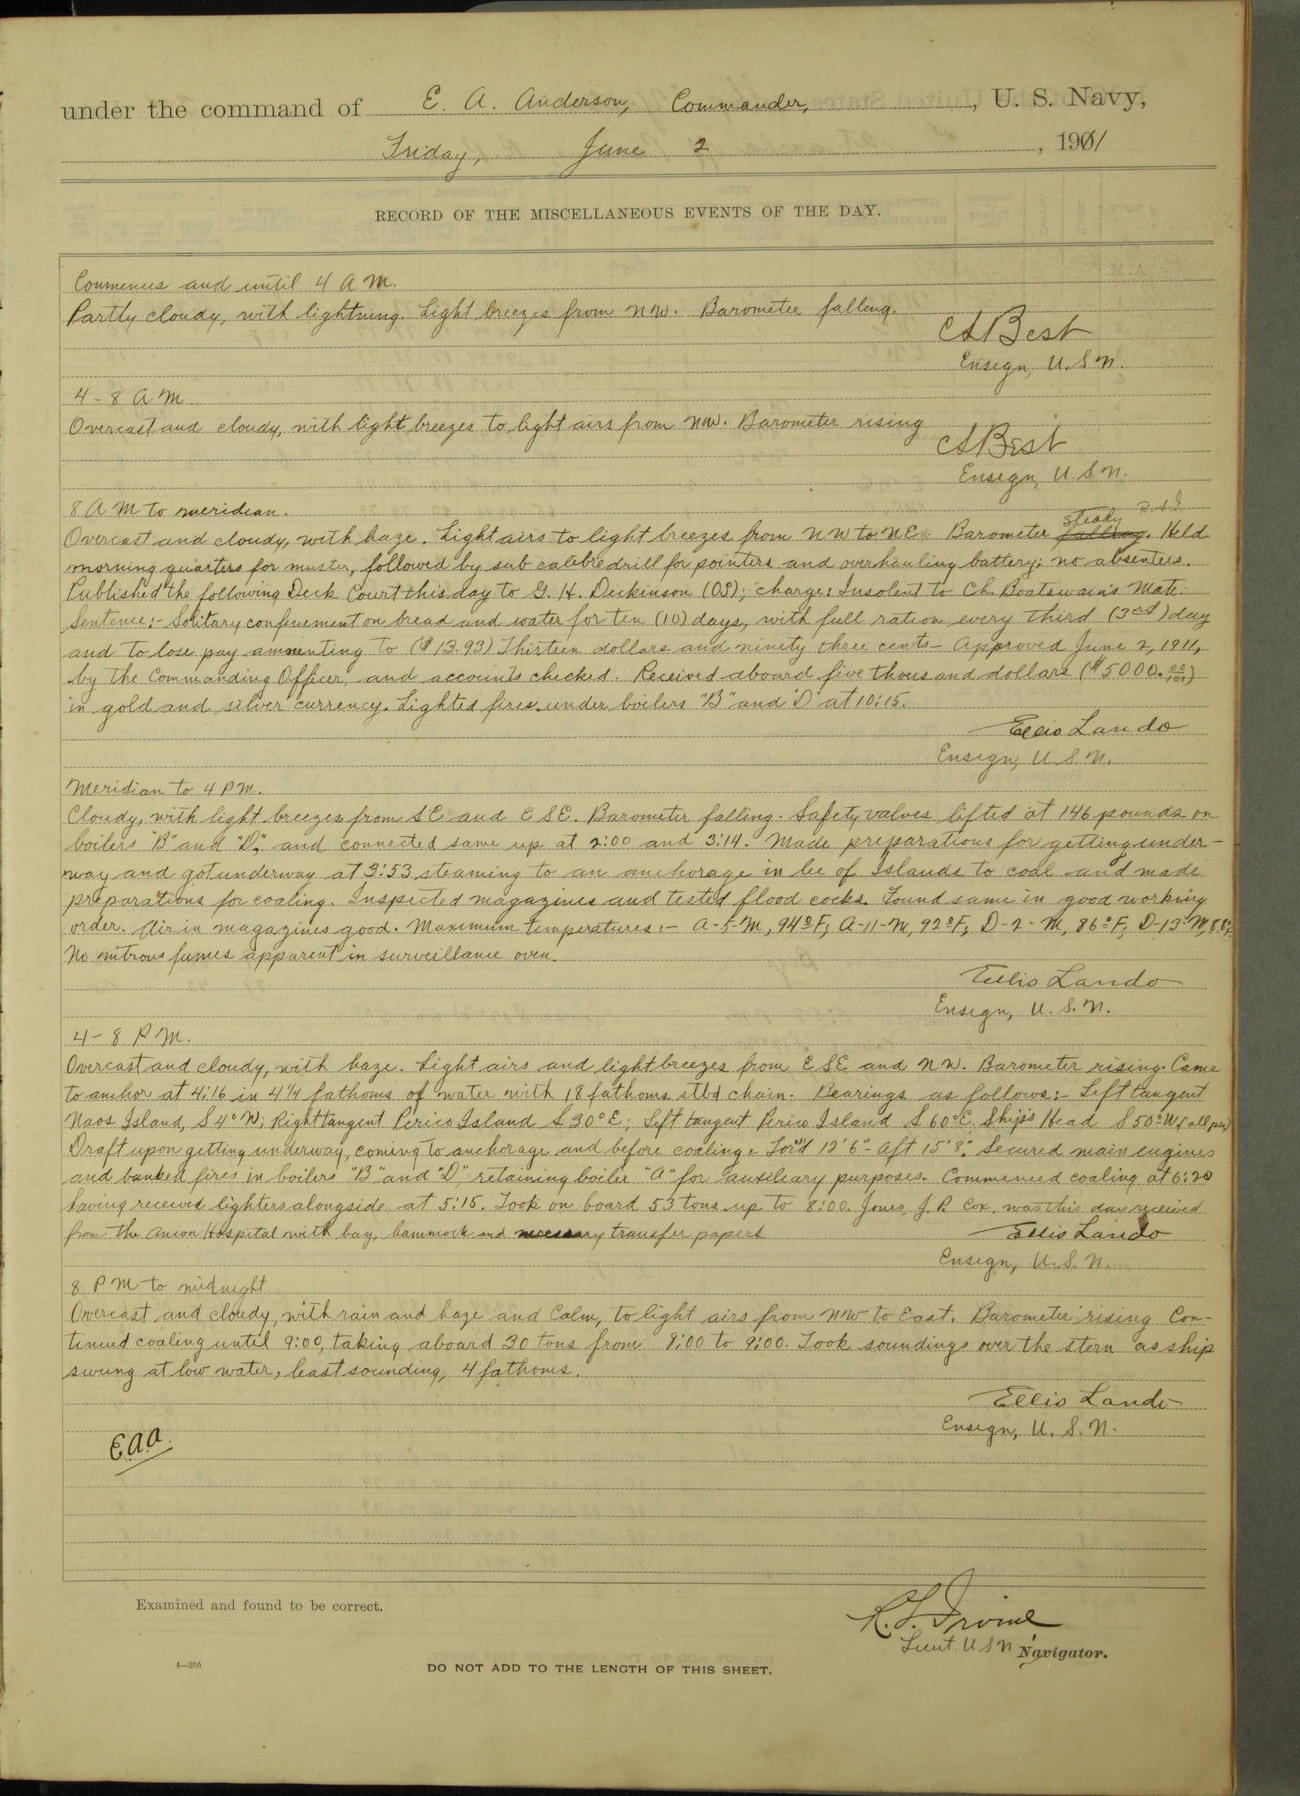 under the command of E. A. Anderson, Commander, , U. S. Navy,
Friday, June 2 , 1911
RECORD OF THE MISCELLANEOUS EVENTS OF THE DAY.
Commences and until 4 A M.
Partly cloudy, with lightning. Light breezes from NW. Barometer falling.
C S Best
Ensign, U. S N.
4 - 8 A M
Overcast and cloudy, with light breezes to light airs from NW. Barometer rising
C S Best
Ensign, U. S N.
8 A M to meridian.
steady
Overcast and cloudy, with haze. Light airs to light breezes from NW to NE. Barometer falling. Held
morning quarters for muster, followed by sub calebre drill for pointers and overhauling battery; no absentees.
Published the following Deck Court this day to G. H. Dickinson (OS); charge: Insolent to Ch. Boatswain's Mate.
Sentence:- Solitary confinement on bread and water for ten (10) days, with full ration every third (3rd) day
and to lose pay amounting to ($13.93) Thirteen dollars and ninety three cents - Approved June 2, 1911,
by the Commanding Officer, and accounts checked. Received aboard five thousand dollars ($5000.00/100)
in gold and silver currency. Lighted fires under boilers "B" and "D" at 10:15.
Ellis Lando
Ensign, U. S. N.
Meridian to 4 P M.
Cloudy, with light breezes from SE and ESE. Barometer falling. Safety valves lifted at 146 pounds on
boilers "B" and "D", and connected same up at 2:00 and 3:14. Made preparations for getting under-
way and got underway at 3:53 steaming to an anchorage in lee of Islands to coal and made
preparations for coaling. Inspected magazines and tested flood cocks. Found same in good working
order. Air in magazines good. Maximum temperatures:- A-5-M, 94°F; A-11-M, 92°F; D-2-M, 86°F; D-13-M, 88°F.
No nitrous fumes apparent in surveillance oven.
Ellis Lando
Ensign, U. S. N.
4 - 8 P M.
Overcast and cloudy, with haze. Light airs and light breezes from ESE and NW. Barometer rising. Came
to anchor at 4:16 in 4 1/4 fathoms of water with 18 fathoms stbd chain. Bearings as follows:- Left tangent
Naos Island, S 4° W; Right tangent Perico Island S 30° E; Left tangent Perico Island S 60° E. Ship's Head S 50° W (all psc)
Draft upon getting underway, coming to anchorage and before coaling: For'd 12' 6" - Aft 15' 8". Secured main engines
and banked fires in boilers "B" and "D", retaining boiler "A" for auxiliary purposes. Commenced coaling at 6:20
having received lighters alongside at 5:15. Took on board 53 tons up to 8:00. Jones, J. P. Cox, was this day received
from the Ancon Hospital with bag, hammock and necessary transfer papers
Ellis Lando
Ensign, U. S. N.
8 P M to midnight.
Overcast and cloudy, with rain and haze and Calm, to light airs from NW to East. Barometer rising Con-
tinued coaling until 9:00, taking aboard 30 tons from 8:00 to 9:00. Took soundings over the stern as ship
swung at low water, least sounding, 4 fathoms.
Ellis Lando
Ensign, U. S. N.
E.A.A.
Examined and found to be correct.
R. F. Irvine
Lieut. U S N Navigator.
4—265
DO NOT ADD TO THE LENGTH OF THIS SHEET.